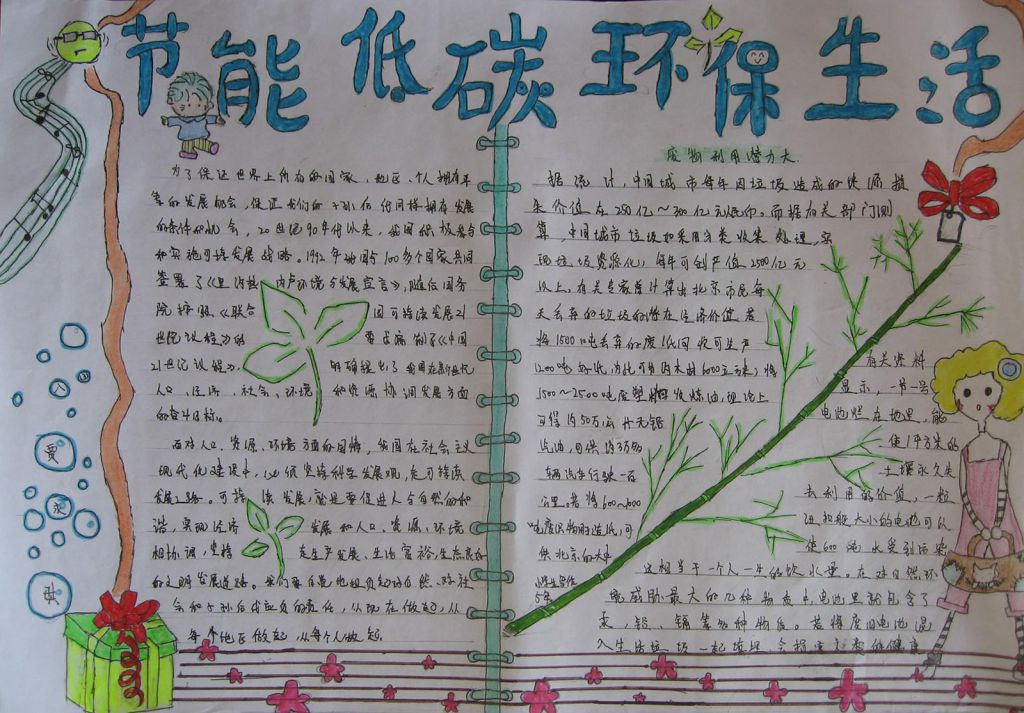 节能低碳环保生活
为了保证世界上所有的国家、地区、个人拥有平
等的发展机会,保证我们的子孙后代同样拥有发展
的条件和机会,20世纪90年代以来,我国积极参与
和实施可持续发展战略。1992年我国与100多个国家共同
签署了《里约热内卢环境与发展宣言》,随后国务
院 《联合国可持续发展21
世纪议程》的 制了《中国
21世纪议程》, 明确提出了我国在新世纪
人口、经济、社会、环境和资源协调发展方面
的奋斗目标。
面对人口、资源、环境方面的国情,我国在社会主义
现代化建设中,必须坚持科学发展观,走可持续
发展道路。可持续发展,就是要促进人与自然的和
谐,实现经济发展和人口、资源、环境
相协调,坚持走生产发展、生活富裕、生态良好
的文明发展道路。我们要自觉地担负起对自然、对社
会和子孙后代应负的责任,从现在做起,从
每个地区做起,从每个人做起。
废物利用潜力大
据统计,中国城市每年因垃圾造成的资源损
失价值在250亿~300亿元人民币。而据有关部门测
算,中国城市垃圾如采用分类收集处理,实
现垃圾资源化,每年可创产值2500亿元
以上。有关专家曾计算出北京市民每
天丢弃的垃圾的潜在经济价值,若
将1500吨丢弃的废纸回收可生产
1200吨好纸,为此可节约木材6000立方米;将
1500~2500吨废塑料收炼油,理论上
可得约50万公升无铅
汽油,可供约3万多
辆汽车行驶一百
公里。若将600~800
吨废织物制造纸,可
供北京的大中
小学生写作
有关资料
显示,一节一号
电池烂在地里,能
使1平方米的
土壤永久失
去利用的价值,一粒
钮扣般大小的电池可以
使600吨水受到污染
这相当于一个人一生的饮水量。在对自然环
境威胁最大的几种物质中,电池里就包含了
汞、铅、镉等多种物质。若将废旧电池混
入生活垃圾一起填埋,会
贾
洪